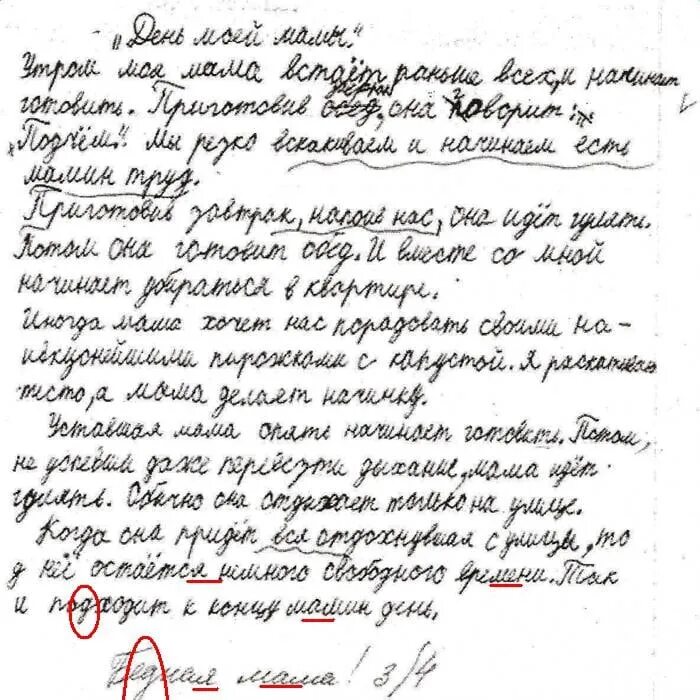 „День моей мамы."
Утром моя мама встаёт раньше всех, и начинает
готовить. Приготовив обед, она говорит:
„Подъём". Мы резко вскакиваем и начинаем есть
мамин труд.
Приготовив завтрак, напоив нас, она идёт гулять.
Потом она готовит обед. И вместе со мной
начинает убираться в квартире.
Иногда мама хочет нас порадовать своими на-
ивкуснейшими пирожками с капустой. Я раскатываю
тесто, а мама делает начинку.
Уставшая мама опять начинает готовить. Потом,
не успевши даже перевезти дыхание, мама идёт
гулять. Обычно она отдыхает только на улице.
Когда она придёт вся отдохнувшая с улицы, то
у неё остаётся немного свободного времени. Так
и подходит к концу мамин день.
Бедная мама! 3/4